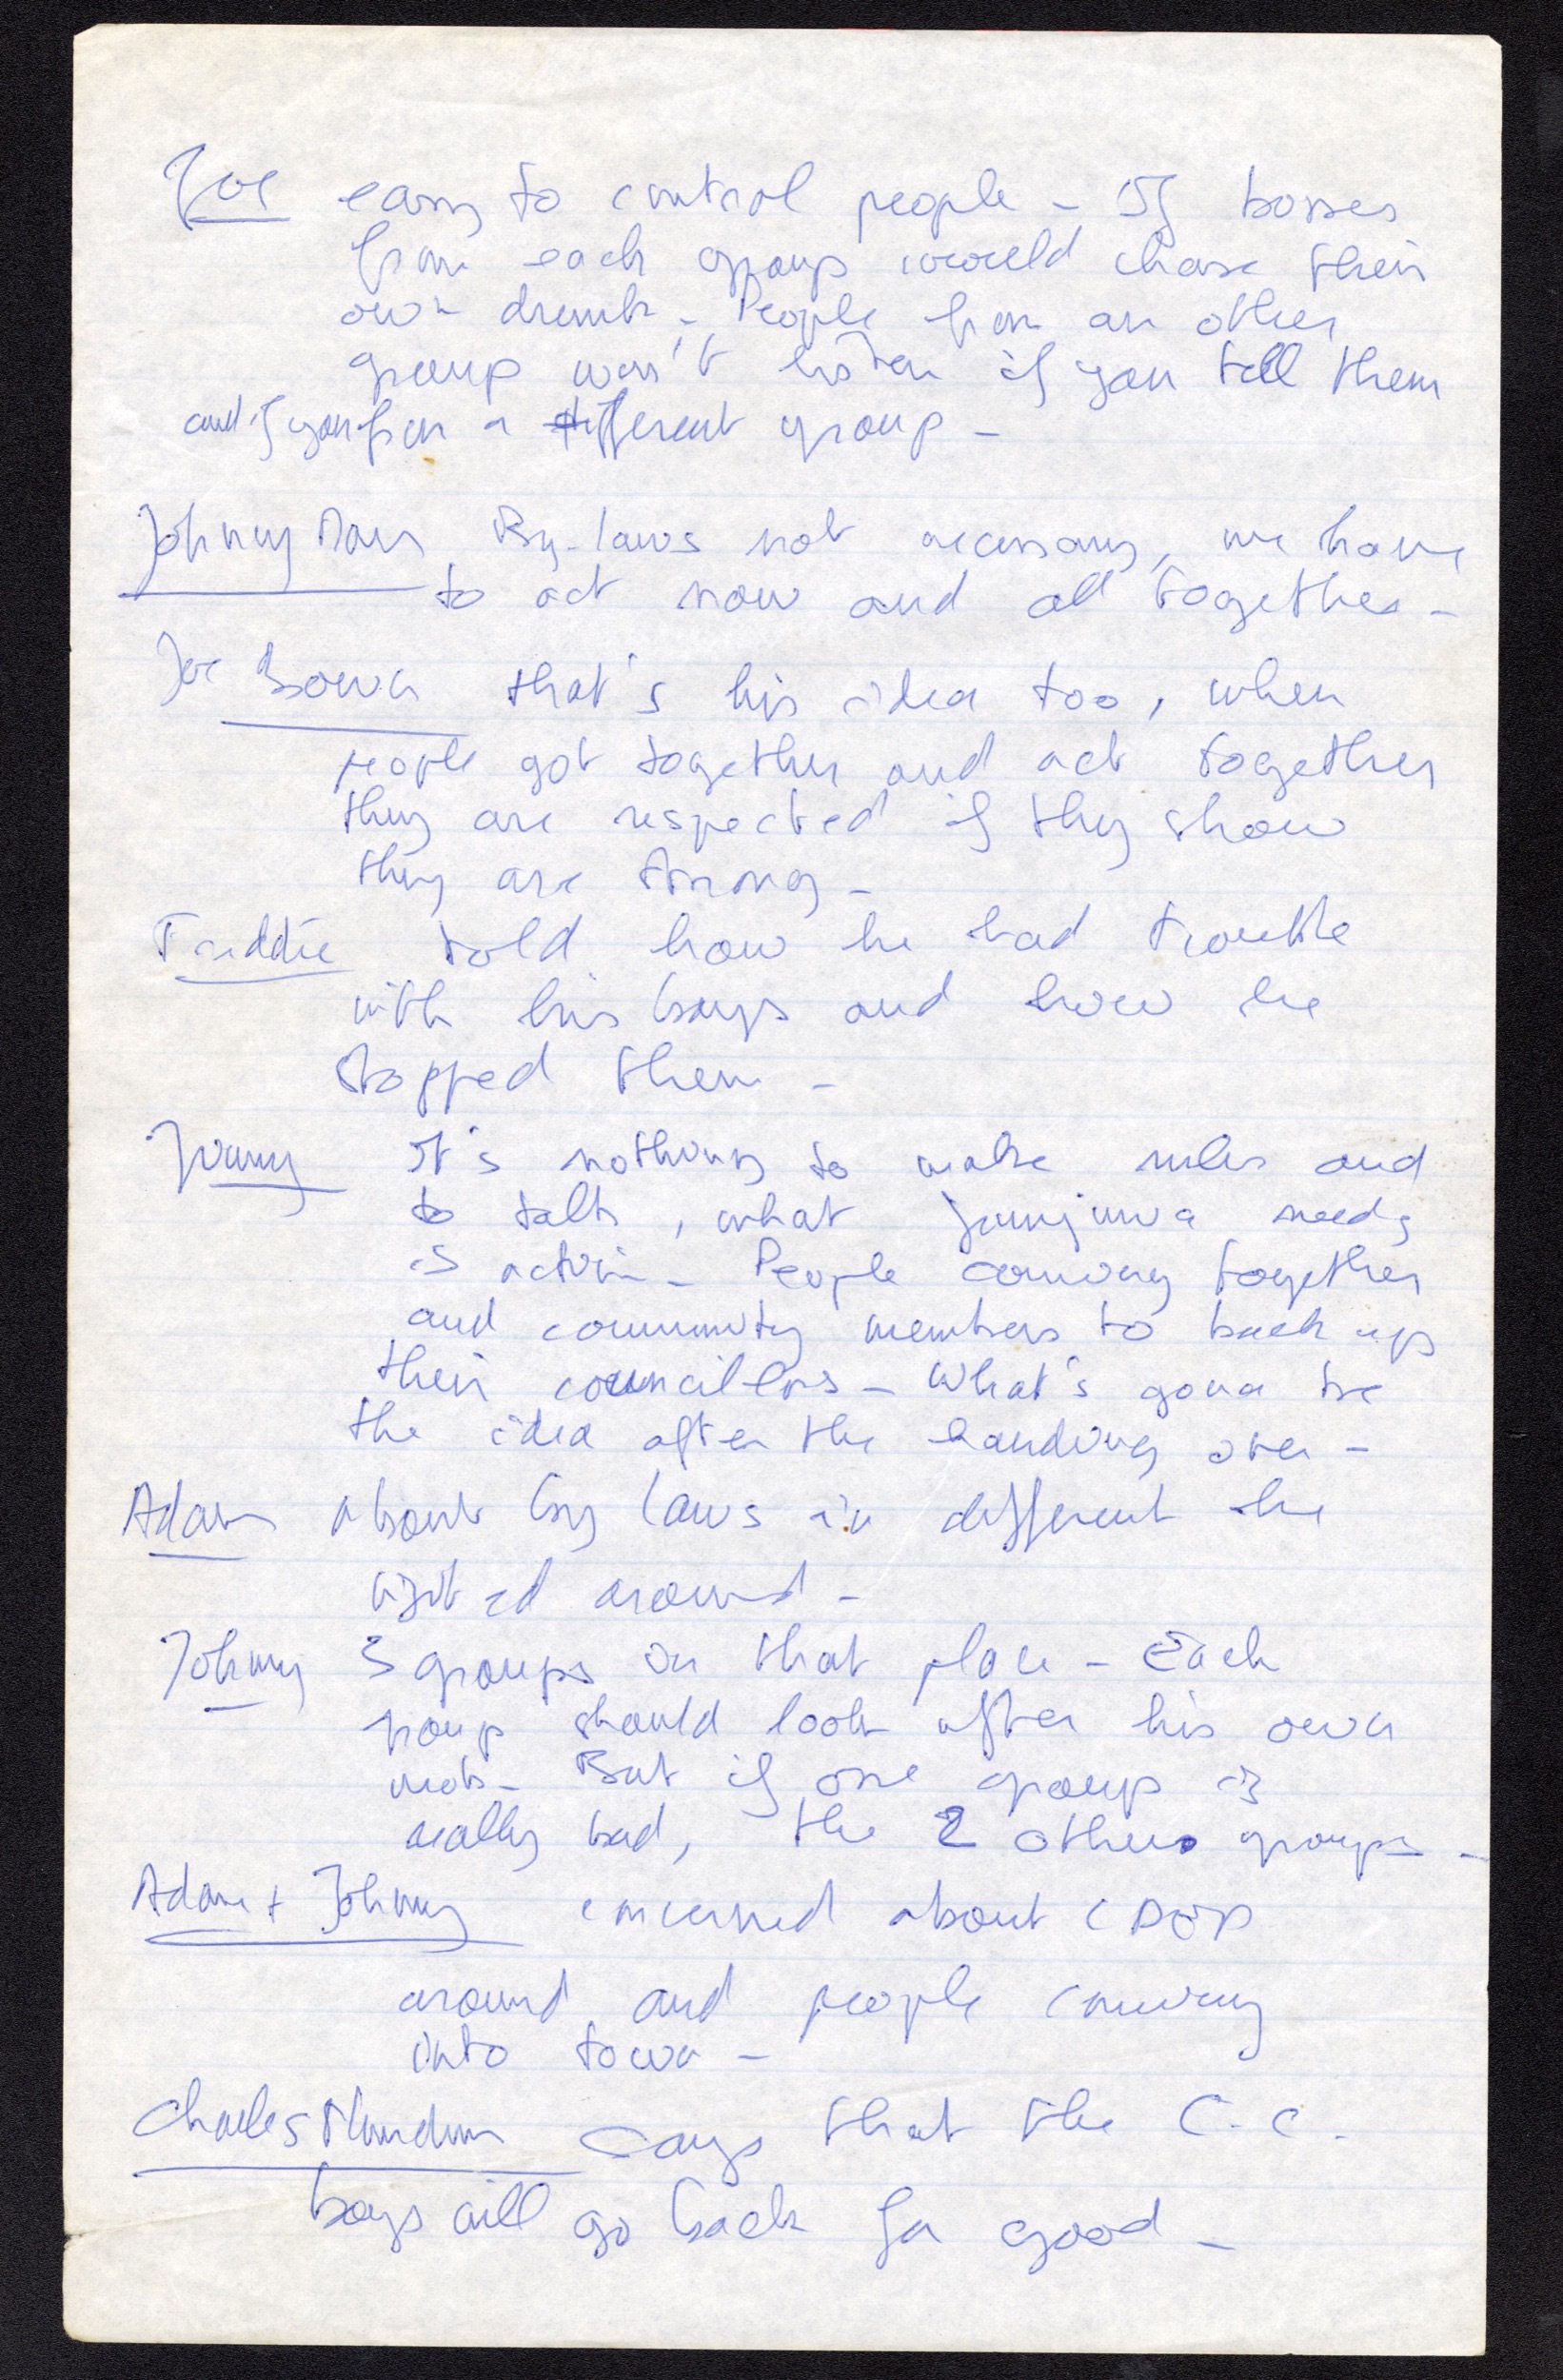 Joe easy to control people - If bosses
from each group would chase their
own drunk - People from an other
group won't listen if you tell them
and if you from a different group -
Johnny By-laws not necessary, we have
to act now and all together -
Joe that's his idea too, when
people got together and act together
they are respected if they show
they are strong -
Freddie told how he had trouble
with his boys and how he
stopped them -
It's nothing to make rules and
to talk, what Junjuwa needs
is action - People coming together
and community members to back up
their councillors - What's gona be
the idea after the handing over -
Adam about by laws in different the
visited around -
Johnny 3 groups in that place - Each
group should look after his own
mob - But if one group is
really bad, the 2 others groups -
Adam + Johnny concerned about CDEP
around and people coming
into town -
Charles says that the C.C.
boys will go back for good -